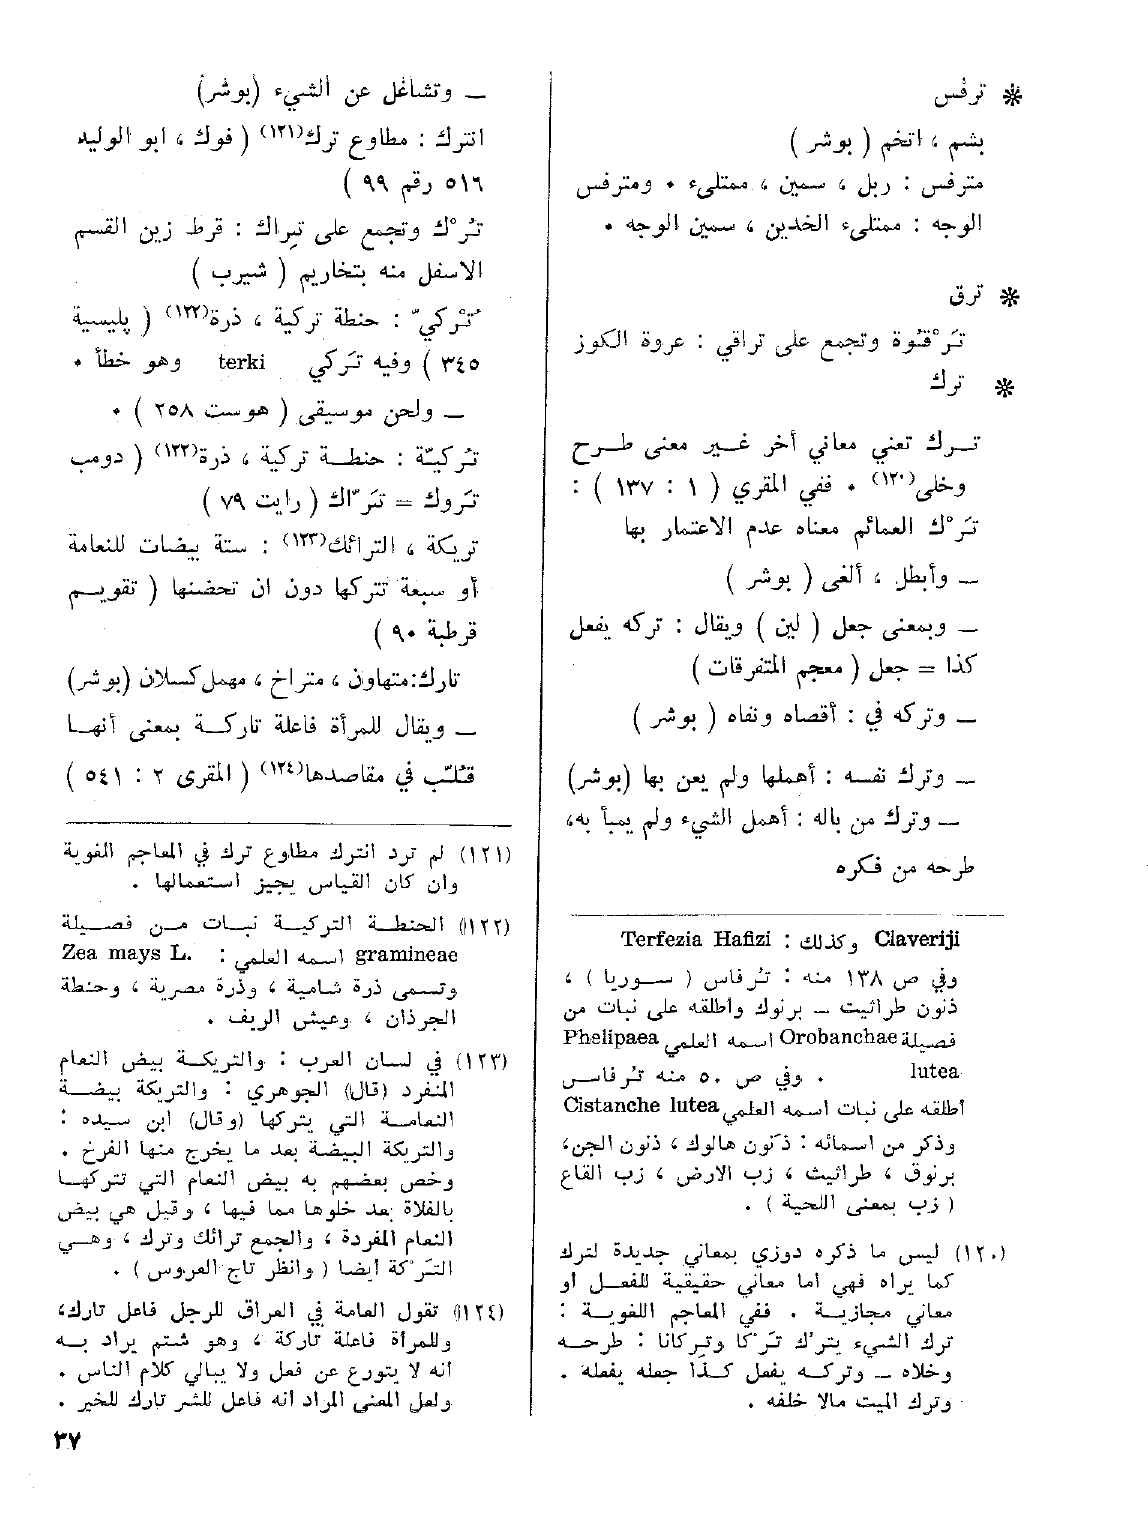 * ترفس
بشم ، اتخم ( بوشر )
مترفس : ربل ، سمين ، ممتلىء • ومترفس
الوجه : ممتلىء الخدين ، سمين الوجه •
* ترق
تَرْقُوة وتجمع على تراقي : عروة الكوز
* ترك
تــرك تعني معاني أخر غــير معنى طــرح
وخلى(١٢٠) • ففي المقري ( ١ : ١٣٧ ) :
تَرْك العمائم معناه عدم الاعتمار بها
ــ وأبطل ، ألغى ( بوشر )
ــ وبمعنى جعل ( لين ) ويقال : تركه يفعل
كذا = جعل ( معجم المتفرقات )
ــ وتركه في : أقصاه ونفاه ( بوشر )
ــ وترك نفسه : أهملها ولم يعن بها (بوشر)
ــ وترك من باله : أهمل الشيء ولم يعبأ به،
طرحه من فكره
Claveriji وكذلك : Terfezia Hafizi
وفي ص ١٣٨ منه : تـُرفاس ( ســوريا ) ،
ذنون طراثيث ــ برنوك وأطلقه على نبات من
فصيلة Orobanchae اسمه العلمي Phelipaea
lutea . وفي ص ٥٠ منه تـُرفاس
أطلقه على نبات اسمه العلمي Cistanche lutea
وذكر من اسمائه : ذَنون هالوك ، ذنون الجن،
برنوق ، طراثيث ، زب الارض ، زب القاع
( زب بمعنى اللحية ) .
(١٢٠) ليس ما ذكره دوزي بمعاني جديدة لترك
كما يراه فهي اما معاني حقيقية للفعــل أو
معاني مجازيــة . ففي المعاجم اللغويــة :
ترك الشيء يترُك تَرْكا وتِركانا : طرحــه
وخلاه ــ وتركــه يفعل كــذا جعله يفعله .
وترك الميت مالا خلفه .
ــ وتشاغل عن الشيء (بوشر)
انترك : مطاوع ترك(١٢١) ( فوك ، ابو الوليد
٥١٦ رقم ٩٩ )
تُرْك وتجمع على تِراك : قرط زين القسم
الاسفل منه بتخاريم ( شيرب )
تُرْكيّ : حنطة تركية ، ذرة(١٢٢) ( پليسية
٣٤٥ ) وفيه تَركي terki وهو خطأ •
ــ ولحن موسيقى ( هوست ٢٥٨ ) •
تُركيّة : حنطــة تركية ، ذرة(١٢٢) ( دومب
تَروك = تَرّاك ( رايت ٧٩ )
تريكة ، الترائك(١٢٣) : ستة بيضات للنعامة
أو سبعة تتركها دون ان تحضنها ( تقويــم
قرطبة ٩٠ )
تارك:متهاون ، متراخ ، مهمل كسلان (بوشر)
ــ ويقال للمرأة فاعلة تاركــة بمعنى أنهــا
قُلّب في مقاصدها(١٢٤) ( المقرى ٢ : ٥٤١ )
(١٢١) لم ترد انترك مطاوع ترك في المعاجم اللغوية
وان كان القياس يجيز استعمالها .
(١٢٢) الحنطــة التركيــة نبــات مــن فصــيلة
gramineae اسمه العلمي : Zea mays L.
وتسمى ذرة شامية ، وذرة مصرية ، وحنطة
الجرذان ، وعيش الريف .
(١٢٣) في لسان العرب : والتريكــة بيض النعام
المنفرد (قال) الجوهري : والتريكة بيضــة
النعامــة التي يتركها (وقال) ابن سيده :
والتريكة البيضة بعد ما يخرج منها الفرخ .
وخص بعضهم به بيض النعام التي تتركهــا
بالفلاة بعد خلوها مما فيها ، وقيل هي بيض
النعام المفردة ، والجمع ترائك وترك ، وهــي
التَرْكة ايضا ( وانظر تاج العروس ) .
(١٢٤) تقول العامة في العراق للرجل فاعل تارك،
وللمرأة فاعلة تاركة ، وهو شتم يراد بــه
انه لا يتورع عن فعل ولا يبالي كلام الناس .
ولعل المعنى المراد انه فاعل للشر تارك للخير .
٣٧